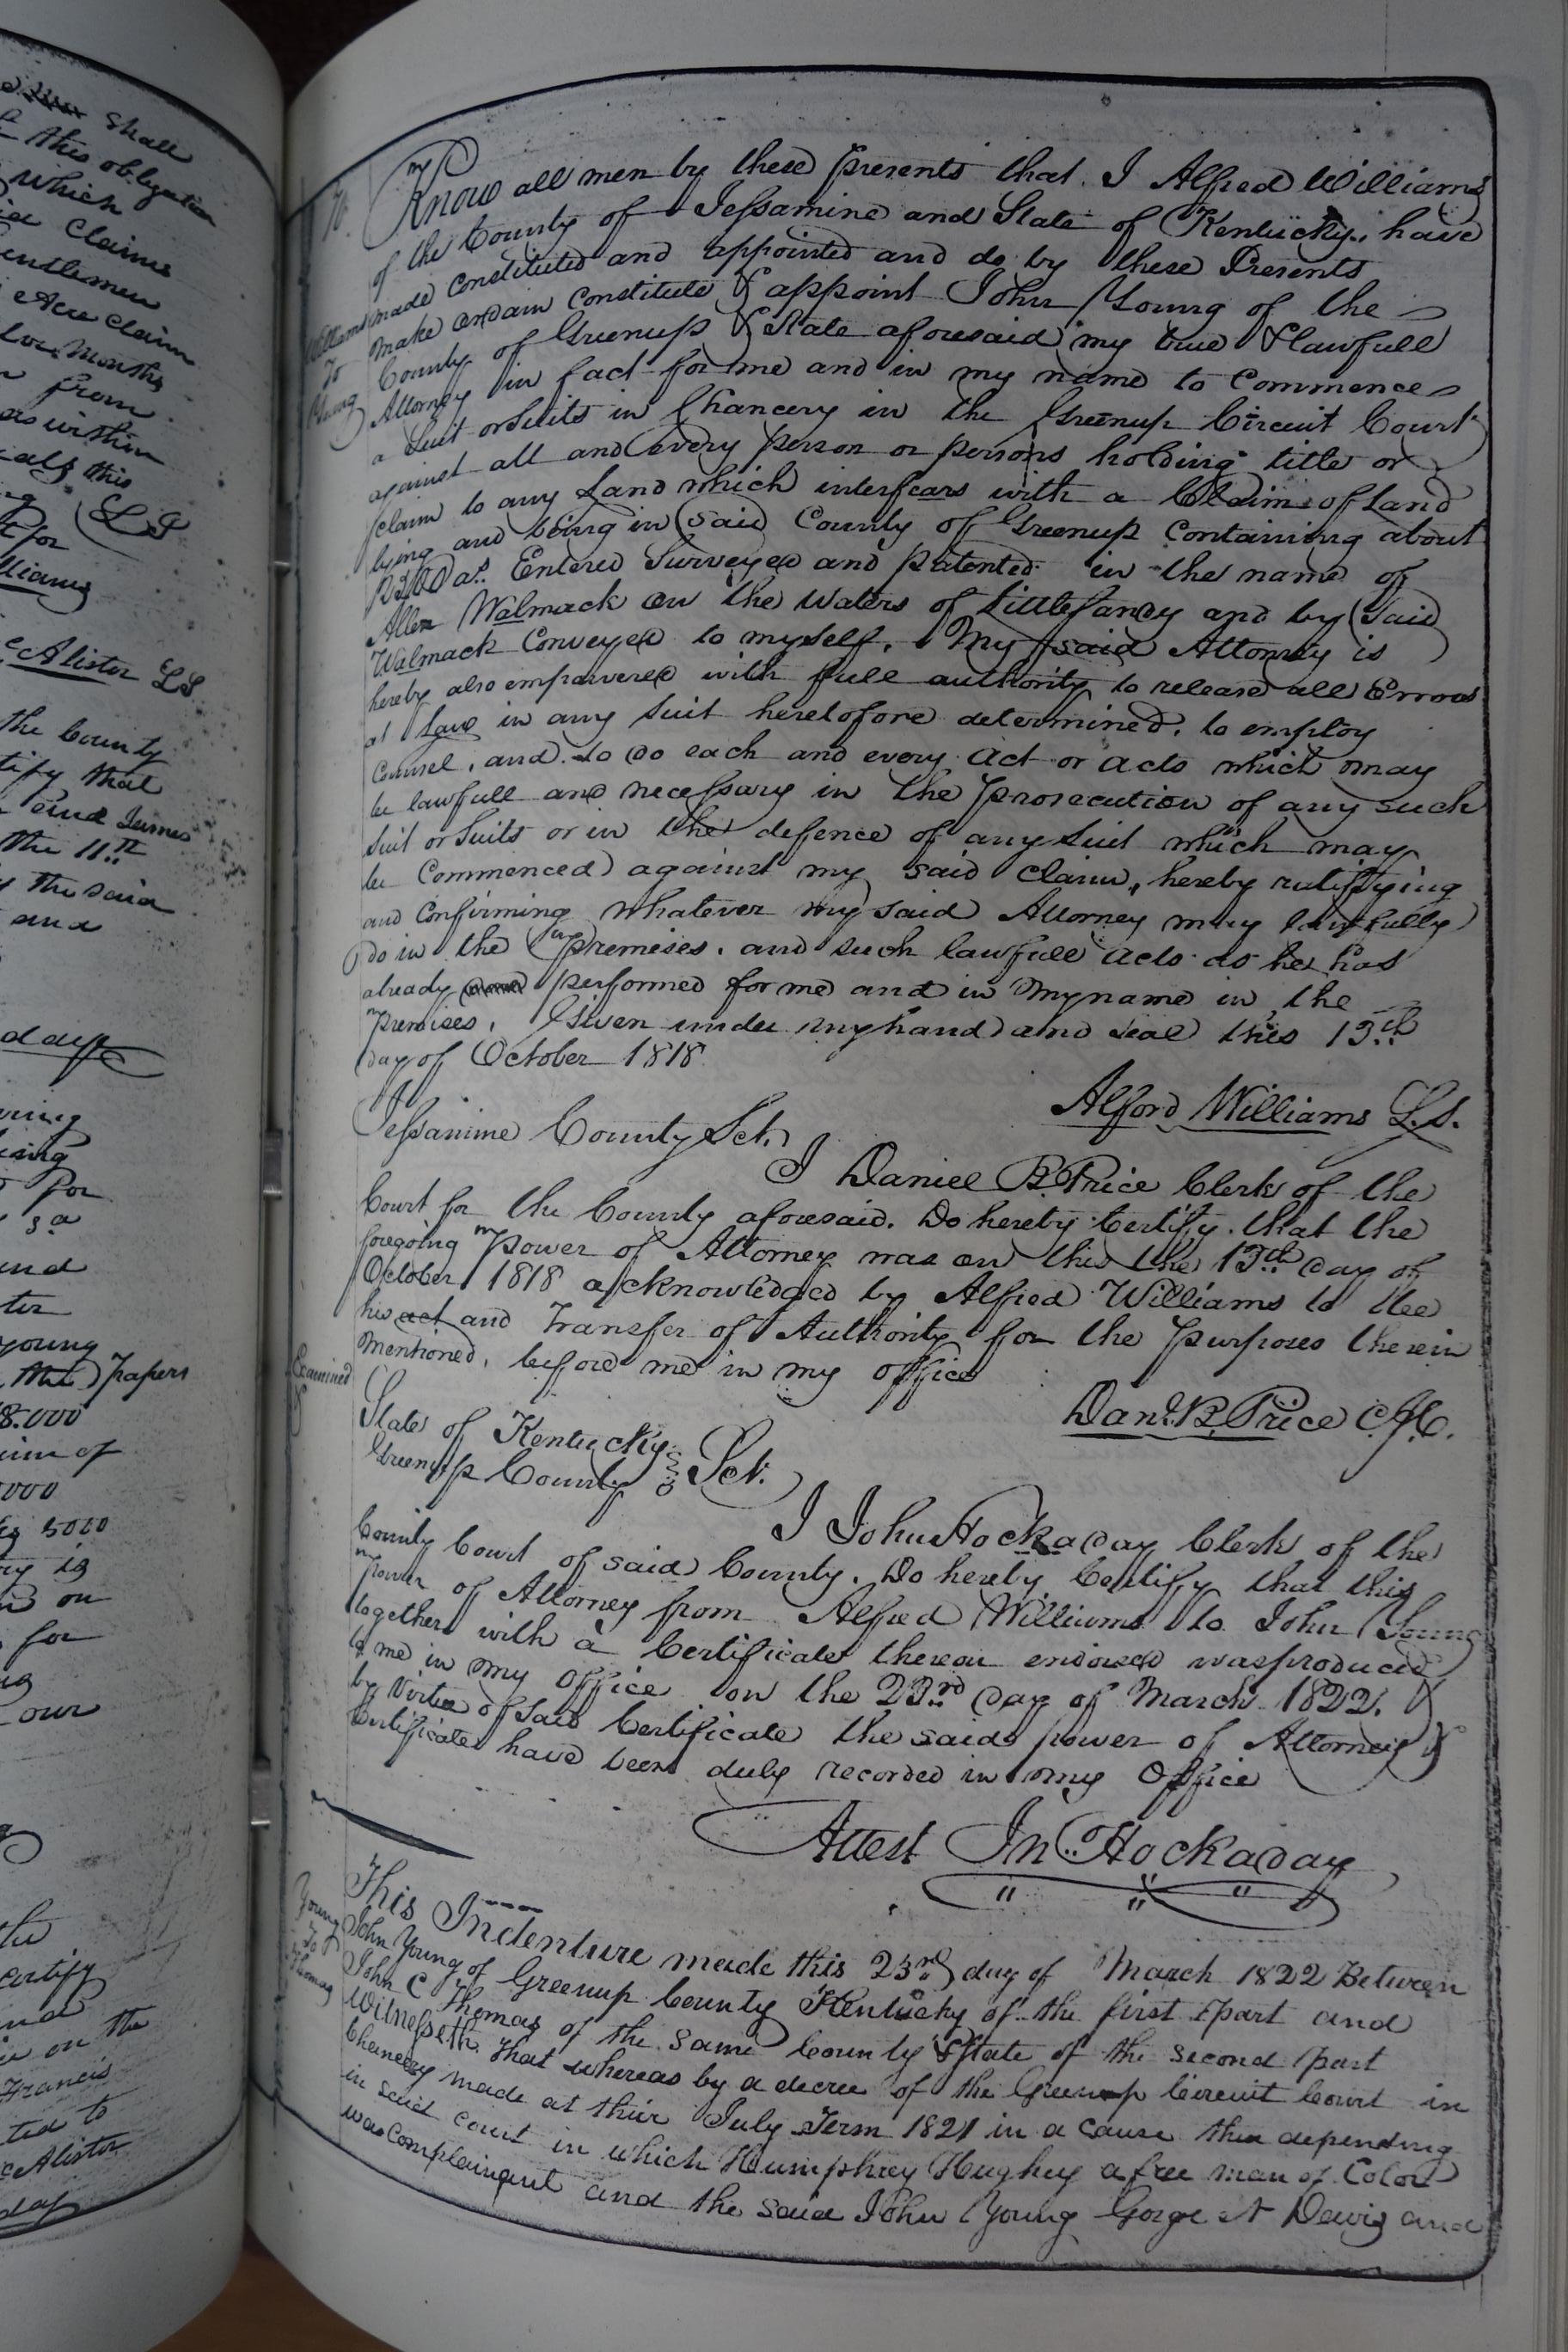 shall
this obligation
which
Claims
entlemen
Acre Claim
Months
from
as within
this
LS
for
lliams
cAlister LS
the County
tify that
and James
the 11th
the said
and
ving
for
3d
and
ter
young
the papers
8.000
um of
000
5000
is
on
for
our
the
certify
and
on the
Francis
ted to
cAlister
Know all men by these presents that I Alfred Williams
of the County of Jessamine and State of Kentucky, have
made Constituted and appointed and do by these Presents
make ordain Constitute & appoint John Young of the
Williams
To
Young
County of Greenup & State aforesaid my true & lawfull
Attorney in fact for me and in my name to Commence
a Suit or Suits in Chancery in the Greenup Circuit Court
against all and every person or persons holding title or
claim to any Land which interfears with a Claim of Land
lying and being in said County of Greenup Containing about
as. Entered Surveyed and patented in the name of
Allen Walmack on the Waters of Little Sandy and by said
Walmack Conveyed to myself. My said Attorney is
hereby also empowered with full authority to release all Errors
at Law in any suit heretofore determined, to employ
Counsel, and to do each and every act or acts which may
be lawfull and necessary in the prosecution of any such
suit or Suits or in the defence of any suit which may
be Commenced against my said claim, hereby ratifying
and Confirming whatever my said Attorney may lawfully
do in the premises, and such lawfull acts as he has
already performed for me and in my name in the
premises. Given under my hand and seal this 13th
day of October 1818
Alford Williams L.S.
Jessamine County Sct.
I Daniel B. Price Clerk of the
Court for the County aforesaid. Do hereby Certify that the
foregoing power of Attorney was on this the 13th day of
October 1818 acknowledged by Alfred Williams to be
his act and Transfer of Authority for the purposes therein
Mentioned, before me in my office
Examined
Danl. B. Price C.J.C.
State of Kentucky
Greenup County Sct.
I John Hockaday Clerk of the
County Court of said County. Do hereby Certify that this
power of Attorney from Alfred Williams to John Young
together with a Certificate thereon endorsed was produced
to me in my Office on the 23rd day of March 1822. &
by Virtue of said Certificate the said power of Attorney &
Certificate have been duly recorded in my Office
Attest Jn. Hockaday
This Indenture made this 23rd day of March 1822 Between
Young
To
Thomas
John Young of Greenup County Kentucky of the first part and
John C Thomas of the same County & State of the second part
Witnesseth that whereas by a decree of the Greenup Circuit Court in
Chancery made at their July Term 1821 in a cause then depending
in said court in which Humphrey Hughey a free man of Color
was Complainant and the said John Young Gorge N Davis and